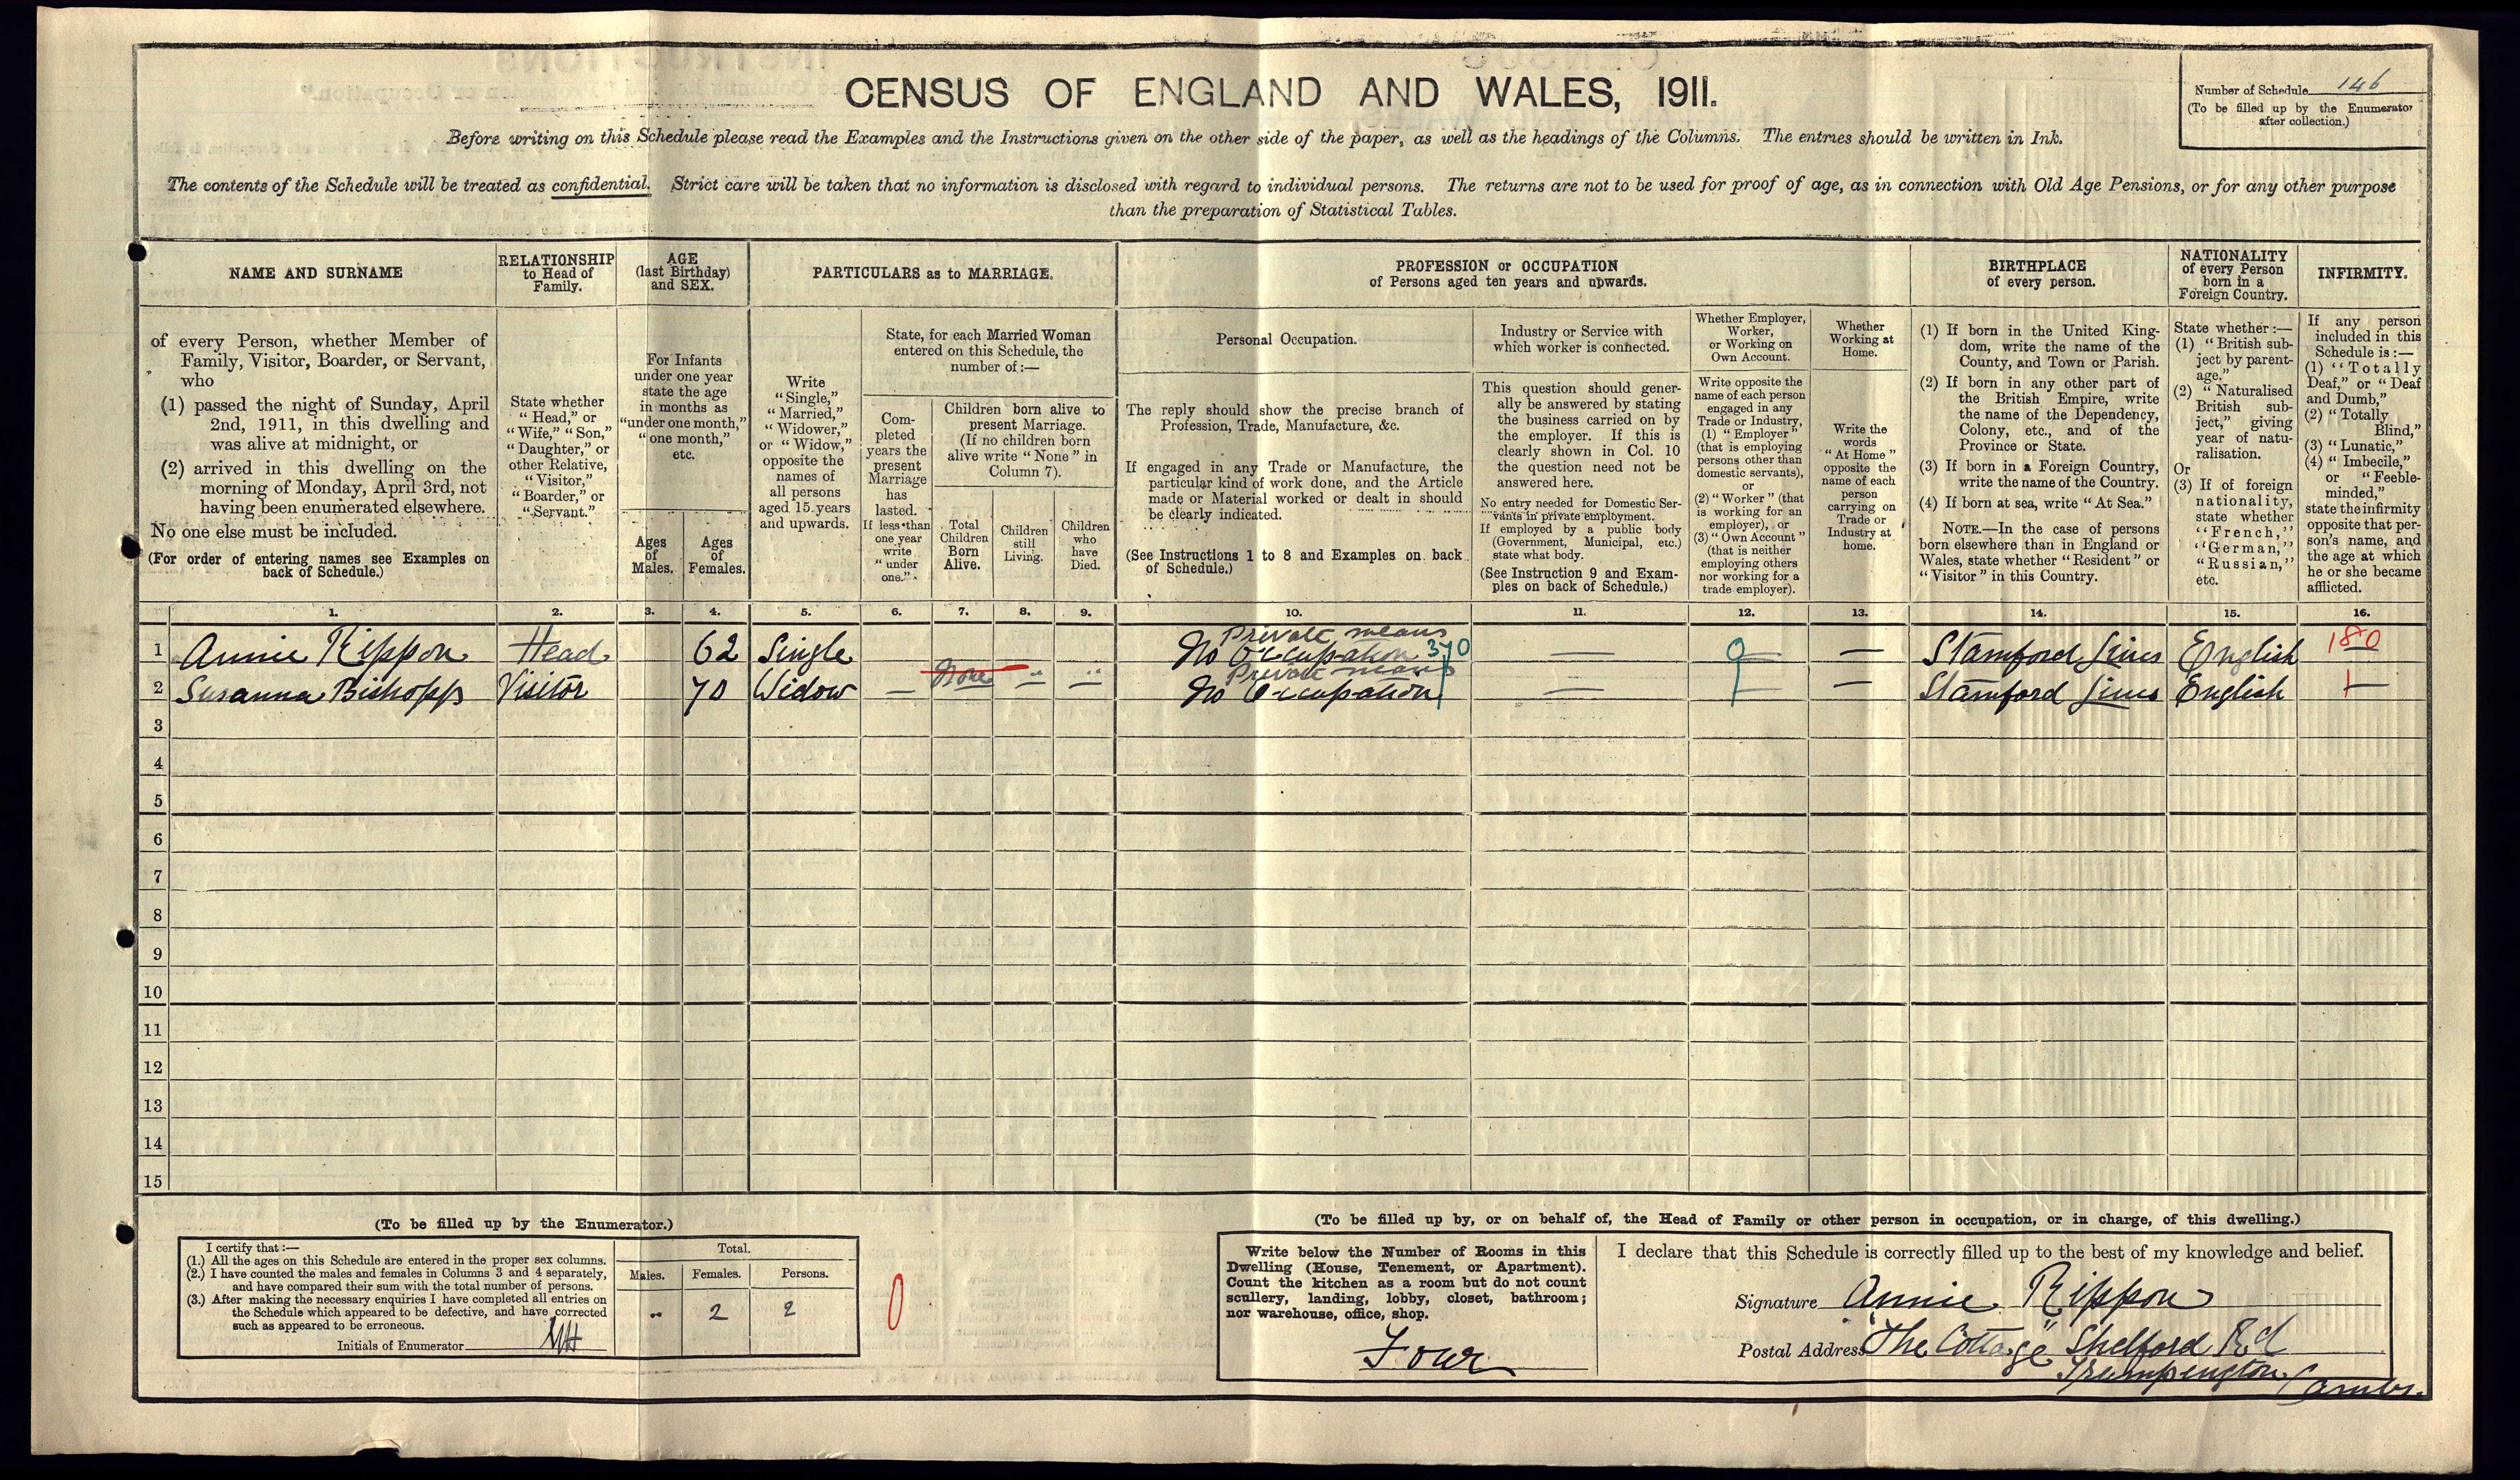 CENSUS OF ENGLAND AND WALES, 1911.
Number of Schedule 146
(To be filled up by the Enumerator
after collection.)
Before writing on this Schedule please read the Examples and the Instructions given on the other side of the paper, as well as the headings of the Columns. The entries should be written in Ink.
The contents of the Schedule will be treated as confidential. Strict care will be taken that no information is disclosed with regard to individual persons. The returns are not to be used for proof of age, as in connection with Old Age Pensions, or for any other purpose
than the preparation of Statistical Tables.
NAME AND SURNAME
of every Person, whether Member of
Family, Visitor, Boarder, or Servant,
who
(1) passed the night of Sunday, April
2nd, 1911, in this dwelling and
was alive at midnight, or
(2) arrived in this dwelling on the
morning of Monday, April 3rd, not
having been enumerated elsewhere.
No one else must be included.
(For order of entering names see Examples on
back of Schedule.)
RELATIONSHIP
to Head of
Family.
State whether
"Head," or
"Wife," "Son,"
"Daughter," or
other Relative,
"Visitor,"
"Boarder," or
"Servant."
AGE
(last Birthday)
and SEX.
For Infants
under one year
state the age
in months as
"under one month,"
"one month,"
etc.
Ages
of
Males.
Ages
of
Females.
PARTICULARS as to MARRIAGE.
Write
"Single,"
"Married,"
"Widower,"
or "Widow,"
opposite the
names of
all persons
aged 15 years
and upwards.
State, for each Married Woman
entered on this Schedule, the
number of:—
Com-
pleted
years the
present
Marriage
has
lasted.
If less than
one year
write
"under
one."
Children born alive to
present Marriage.
(If no children born
alive write "None" in
Column 7).
Total
Children
Born
Alive.
Children
still
Living.
Children
who
have
Died.
PROFESSION or OCCUPATION
of Persons aged ten years and upwards.
Personal Occupation.
The reply should show the precise branch of
Profession, Trade, Manufacture, &c.
If engaged in any Trade or Manufacture, the
particular kind of work done, and the Article
made or Material worked or dealt in should
be clearly indicated.
(See Instructions 1 to 8 and Examples on back
of Schedule.)
Industry or Service with
which worker is connected.
This question should gener-
ally be answered by stating
the business carried on by
the employer. If this is
clearly shown in Col. 10
the question need not be
answered here.
No entry needed for Domestic Ser-
vants in private employment.
If employed by a public body
(Government, Municipal, etc.)
state what body.
(See Instruction 9 and Exam-
ples on back of Schedule.)
Whether Employer,
Worker,
or Working on
Own Account.
Write opposite the
name of each person
engaged in any
Trade or Industry,
(1) "Employer"
(that is employing
persons other than
domestic servants),
or
(2) "Worker" (that
is working for an
employer), or
(3) "Own Account"
(that is neither
employing others
nor working for a
trade employer).
Whether
Working at
Home.
Write the
words
"At Home"
opposite the
name of each
person
carrying on
Trade or
Industry at
home.
BIRTHPLACE
of every person.
(1) If born in the United King-
dom, write the name of the
County, and Town or Parish.
(2) If born in any other part of
the British Empire, write
the name of the Dependency,
Colony, etc., and of the
Province or State.
(3) If born in a Foreign Country,
write the name of the Country.
(4) If born at sea, write "At Sea."
NOTE.—In the case of persons
born elsewhere than in England or
Wales, state whether "Resident" or
"Visitor" in this Country.
NATIONALITY
of every Person
born in a
Foreign Country.
State whether:—
(1) "British sub-
ject by parent-
age."
(2) "Naturalised
British sub-
ject," giving
year of natu-
ralisation.
Or
(3) If of foreign
nationality,
state whether
"French,"
"German,"
"Russian,"
etc.
INFIRMITY.
If any person
included in this
Schedule is:—
(1) "Totally
Deaf," or "Deaf
and Dumb,"
(2) "Totally
Blind,"
(3) "Lunatic,"
(4) "Imbecile,"
or "Feeble-
minded,"
state the infirmity
opposite that per-
son's name, and
the age at which
he or she became
afflicted.
1. 2. 3. 4. 5. 6. 7. 8. 9. 10. 11. 12. 13. 14. 15. 16.
Private means
1 Annie Rippon Head 62 Single No Occupation 370 — 9 — Stamford Lincs English 180
Private means
2 Susanna Bishopp Visitor 70 Widow — None " " No Occupation — — — Stamford Lincs English —
3
4
5
6
7
8
9
10
11
12
13
14
15
(To be filled up by the Enumerator.)
I certify that:—
(1.) All the ages on this Schedule are entered in the proper sex columns.
(2.) I have counted the males and females in Columns 3 and 4 separately,
and have compared their sum with the total number of persons.
(3.) After making the necessary enquiries I have completed all entries on
the Schedule which appeared to be defective, and have corrected
such as appeared to be erroneous.
Initials of Enumerator
Total.
Males. Females. Persons.
.. 2 2
0
(To be filled up by, or on behalf of, the Head of Family or other person in occupation, or in charge, of this dwelling.)
Write below the Number of Rooms in this
Dwelling (House, Tenement, or Apartment).
Count the kitchen as a room but do not count
scullery, landing, lobby, closet, bathroom;
nor warehouse, office, shop.
Four
I declare that this Schedule is correctly filled up to the best of my knowledge and belief.
Signature Annie Rippon
Postal Address "The Cottage" Shelford Rd
Trumpington, Cambs.